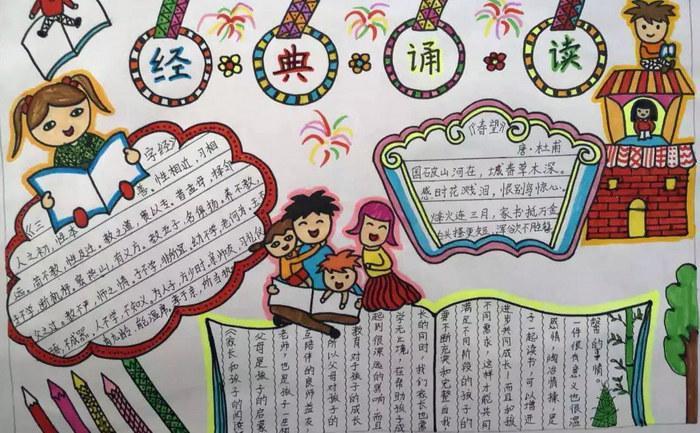 经典诵读
《三字经》
人之初,性本善,性相近,习相
远。苟不教,性乃迁。教之道,贵以专。昔孟母,择邻
子不学,断机杼。窦燕山,有义方。教五子,名俱扬。养不教,
父之过。教不严,师之惰。子不学,非所宜。幼不学,老何为。玉不
琢,不成器。人不学,不知义。为人子,方少时。亲师友,习礼仪
香九龄,能温席。孝于亲,所当执
《春望》
唐·杜甫
国破山河在,城春草木深。
感时花溅泪,恨别鸟惊心。
烽火连三月,家书抵万金
白头搔更短,浑欲不胜簪
《家长和孩子的阅读
父母是孩子的启蒙
老师,也是孩子一生
互陪伴的良师益友
所以父母对孩子的
教育对子孩子的成长
起到很深远的影响,而且
学无止境,在帮助孩子成
长的同时,我们家长也要
不断充实和完整自我
满足不同阶段的孩子的
不同需求,这样才能共同
进步共同成长,而且和孩
子一起读书,可以增进
感情,陶冶情操,是
一件很有意义也很温
馨的事情。